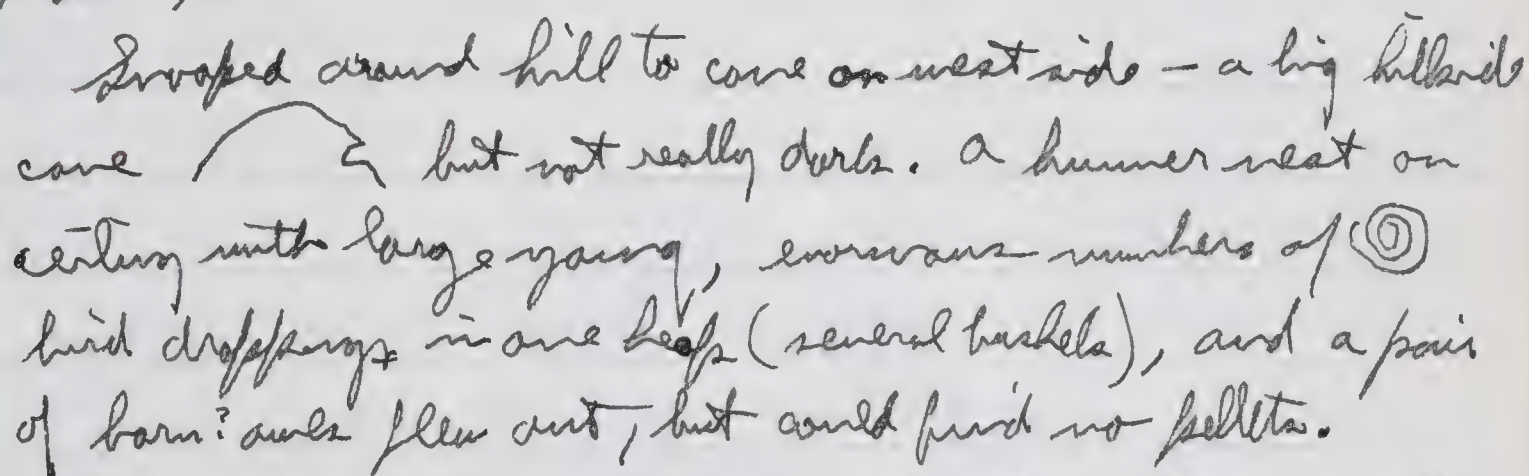 Snooped around hill to cave on west side – a big hillside
cave but not really dark. A hummer nest on
ceiling with large young, enormous numbers of
bird droppings in one heap (several bushels), and a pair
of barn? owls flew out, but could find no pellets.